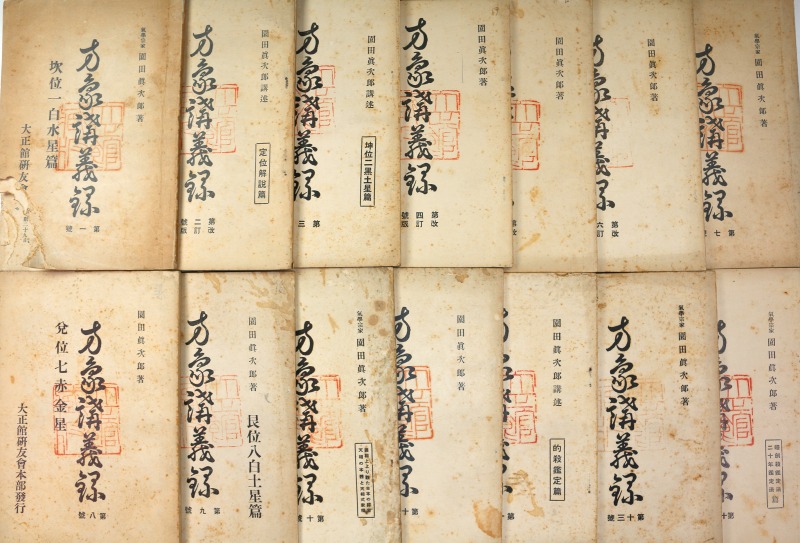 氣學宗家 園田眞次郎著
方象講義錄
坎位一白水星篇
大正館研友會
第一號
園田眞次郎講述
方象講義錄
定位解說篇
第二號
改訂版
園田眞次郎講述
方象講義錄
坤位二黑土星篇
第三
園田眞次郎著
方象講義錄
第四號
改訂版
園田眞次郎著
第
改
園田眞次郎著
方象講義錄
第六
改訂
氣學宗家 園田眞次郎著
方象講義錄
第七號
園田眞次郎著
方象講義錄
兌位七赤金星
大正館研友會本部發行
第八號
園田眞次郎著
方象講義錄
艮位八白土星篇
第九號
氣學宗家 園田眞次郎著
方象講義錄
第十號
園田眞次郎著
方象講義錄
第十
園田眞次郎講述
方象講義錄
的殺鑑定篇
氣學宗家 園田眞次郎著
方象講義錄
第十三號
氣學宗家 園田眞次郎著
方象講義錄